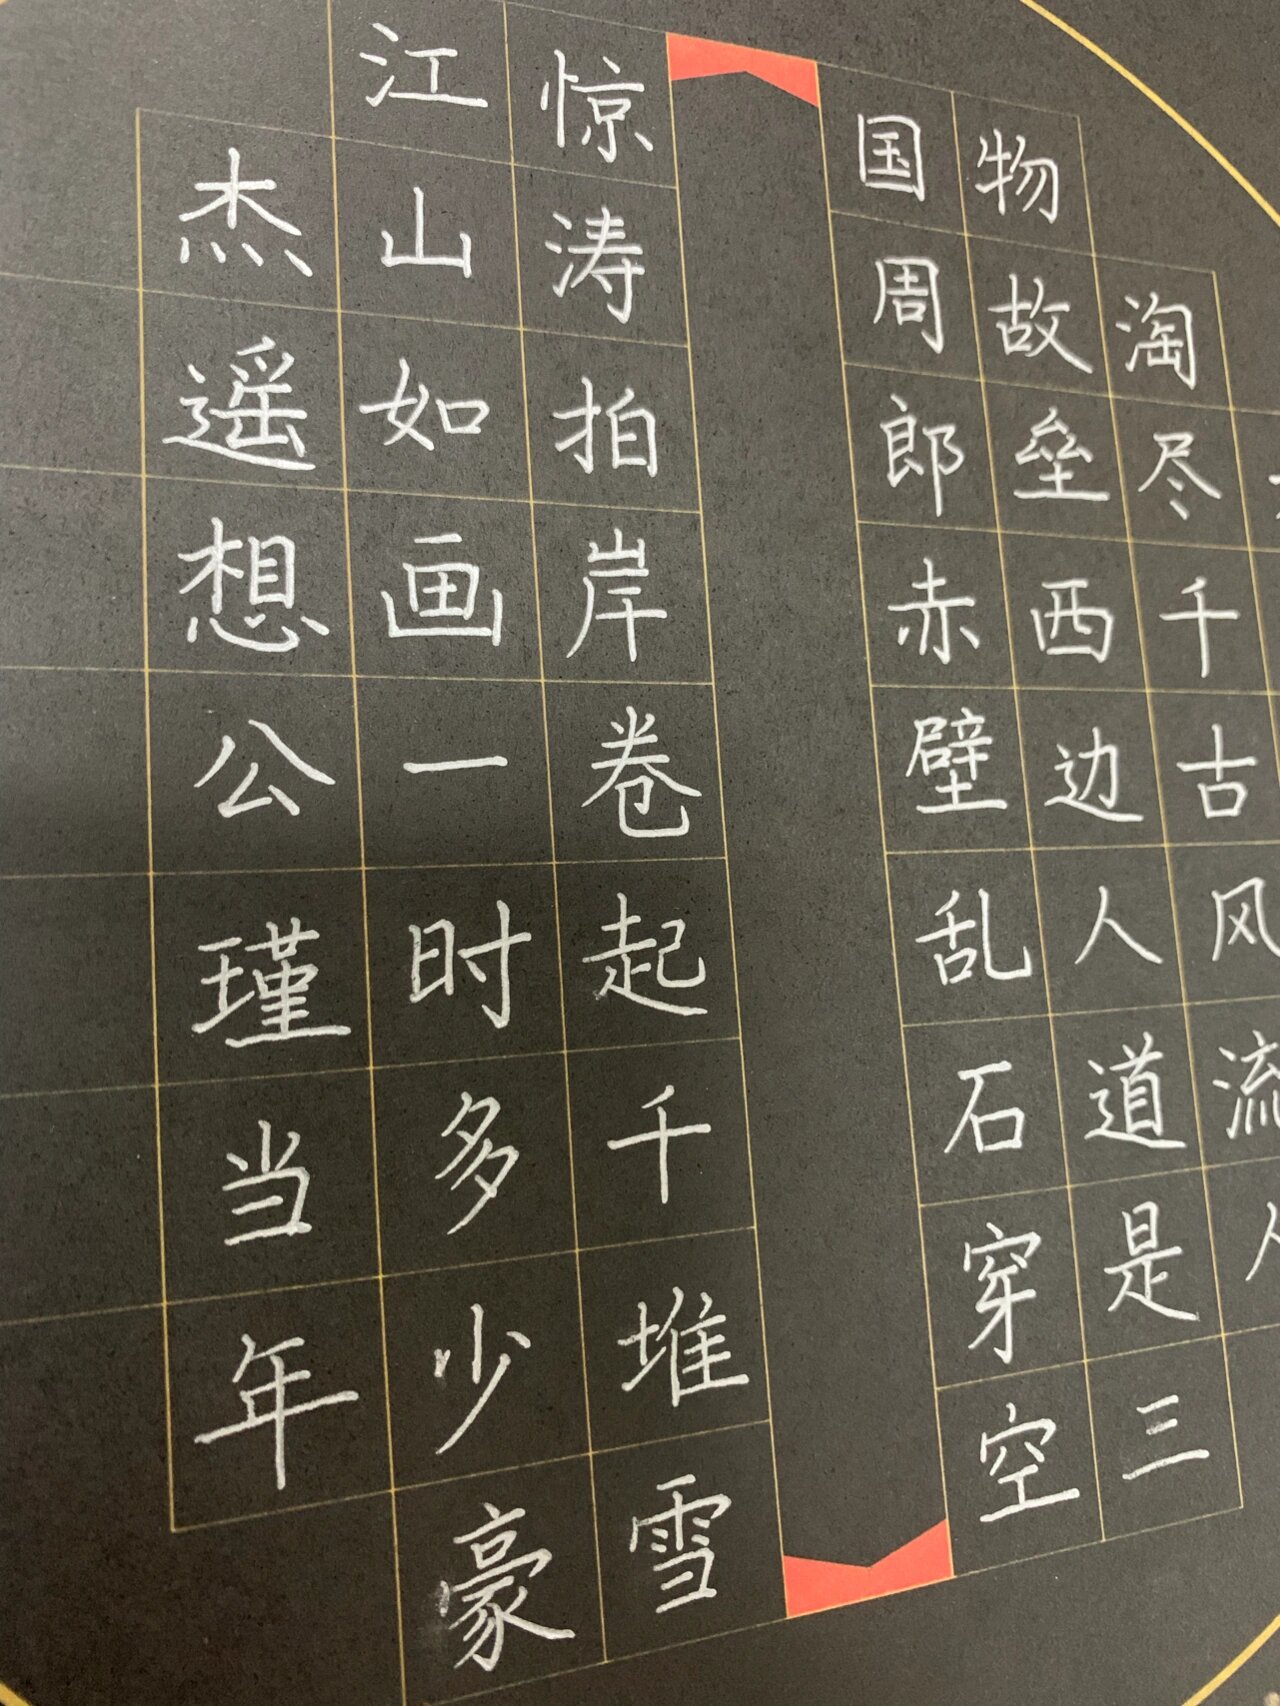 淘尽千古风流人
物故垒西边人道是三
国周郎赤壁乱石穿空
惊涛拍岸卷起千堆雪
江山如画一时多少豪
杰遥想公瑾当年